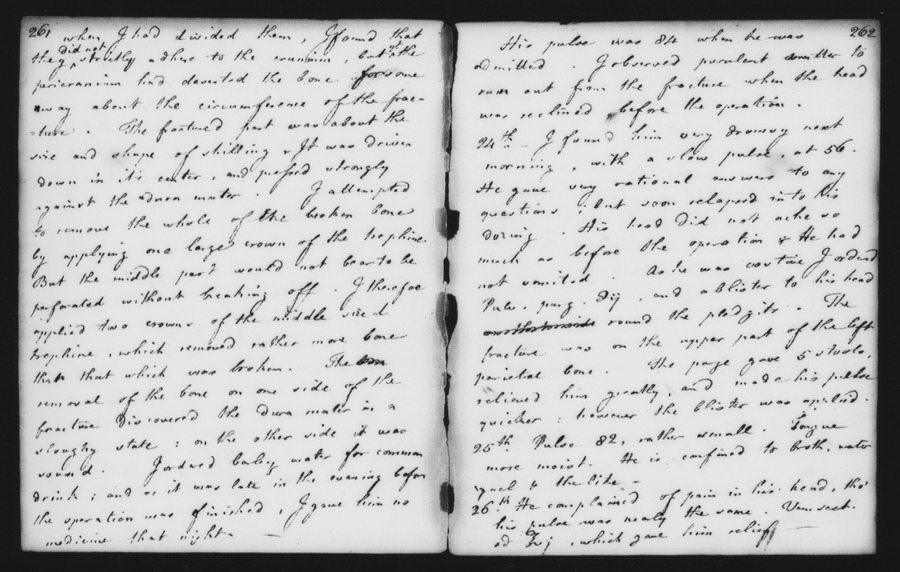 261
when I had divided them, I found that
they did not strictly adhere to the cranium, but yt the
pericranium had deserted the bone for some
way about the circumference of the frac-
-ture. The fractured part was about the
size and shape of shilling. It was driven
down in it's center, and pressed strongly
against the dura mater. I attempted
to remove the whole of the broken bone
by applying one large crown of the trephine.
But the middle part would not bear to be
perforated without breaking off. I therefore
applied two crowns of the middle sized
trephine, which removed rather more bone
than that which was broken. The
removal of the bone on one side of the
fracture discovered the dura mater in a
sloughy state: on the other side it was
sound. I ordered barley water for common
drink; and as it was late in the evening before
the operation was finished, I gave him no
medicine that night.
262
His pulse was 84 when he was
admitted. I observed purulent matter to
run out from the fracture when the head
was reclined before the operation.
24th - I found him very drowsy next
morning, with a slow pulse, at 56.
He gave very rational answers to any
questions; but soon relapsed into his
dozing. His head did not ache so
much as before the operation & He had
not vomited. As he was costive I ordered
Pulv. purg. Дij, and a blister to his head
round the pledgits. The
fracture was on the upper part of the left
parietal bone. The purge gave 5 stools,
relieved him greatly, and made his pulse
quicker: however the blister was applied.
25th Pulse 82, rather small. Tongue
more moist. He is confined to broth, water
gruel & the like.
26th He complained of pain in his head, tho'
his pulse was nearly the same. Venæsect.
ad ℥vj, which gave him relief